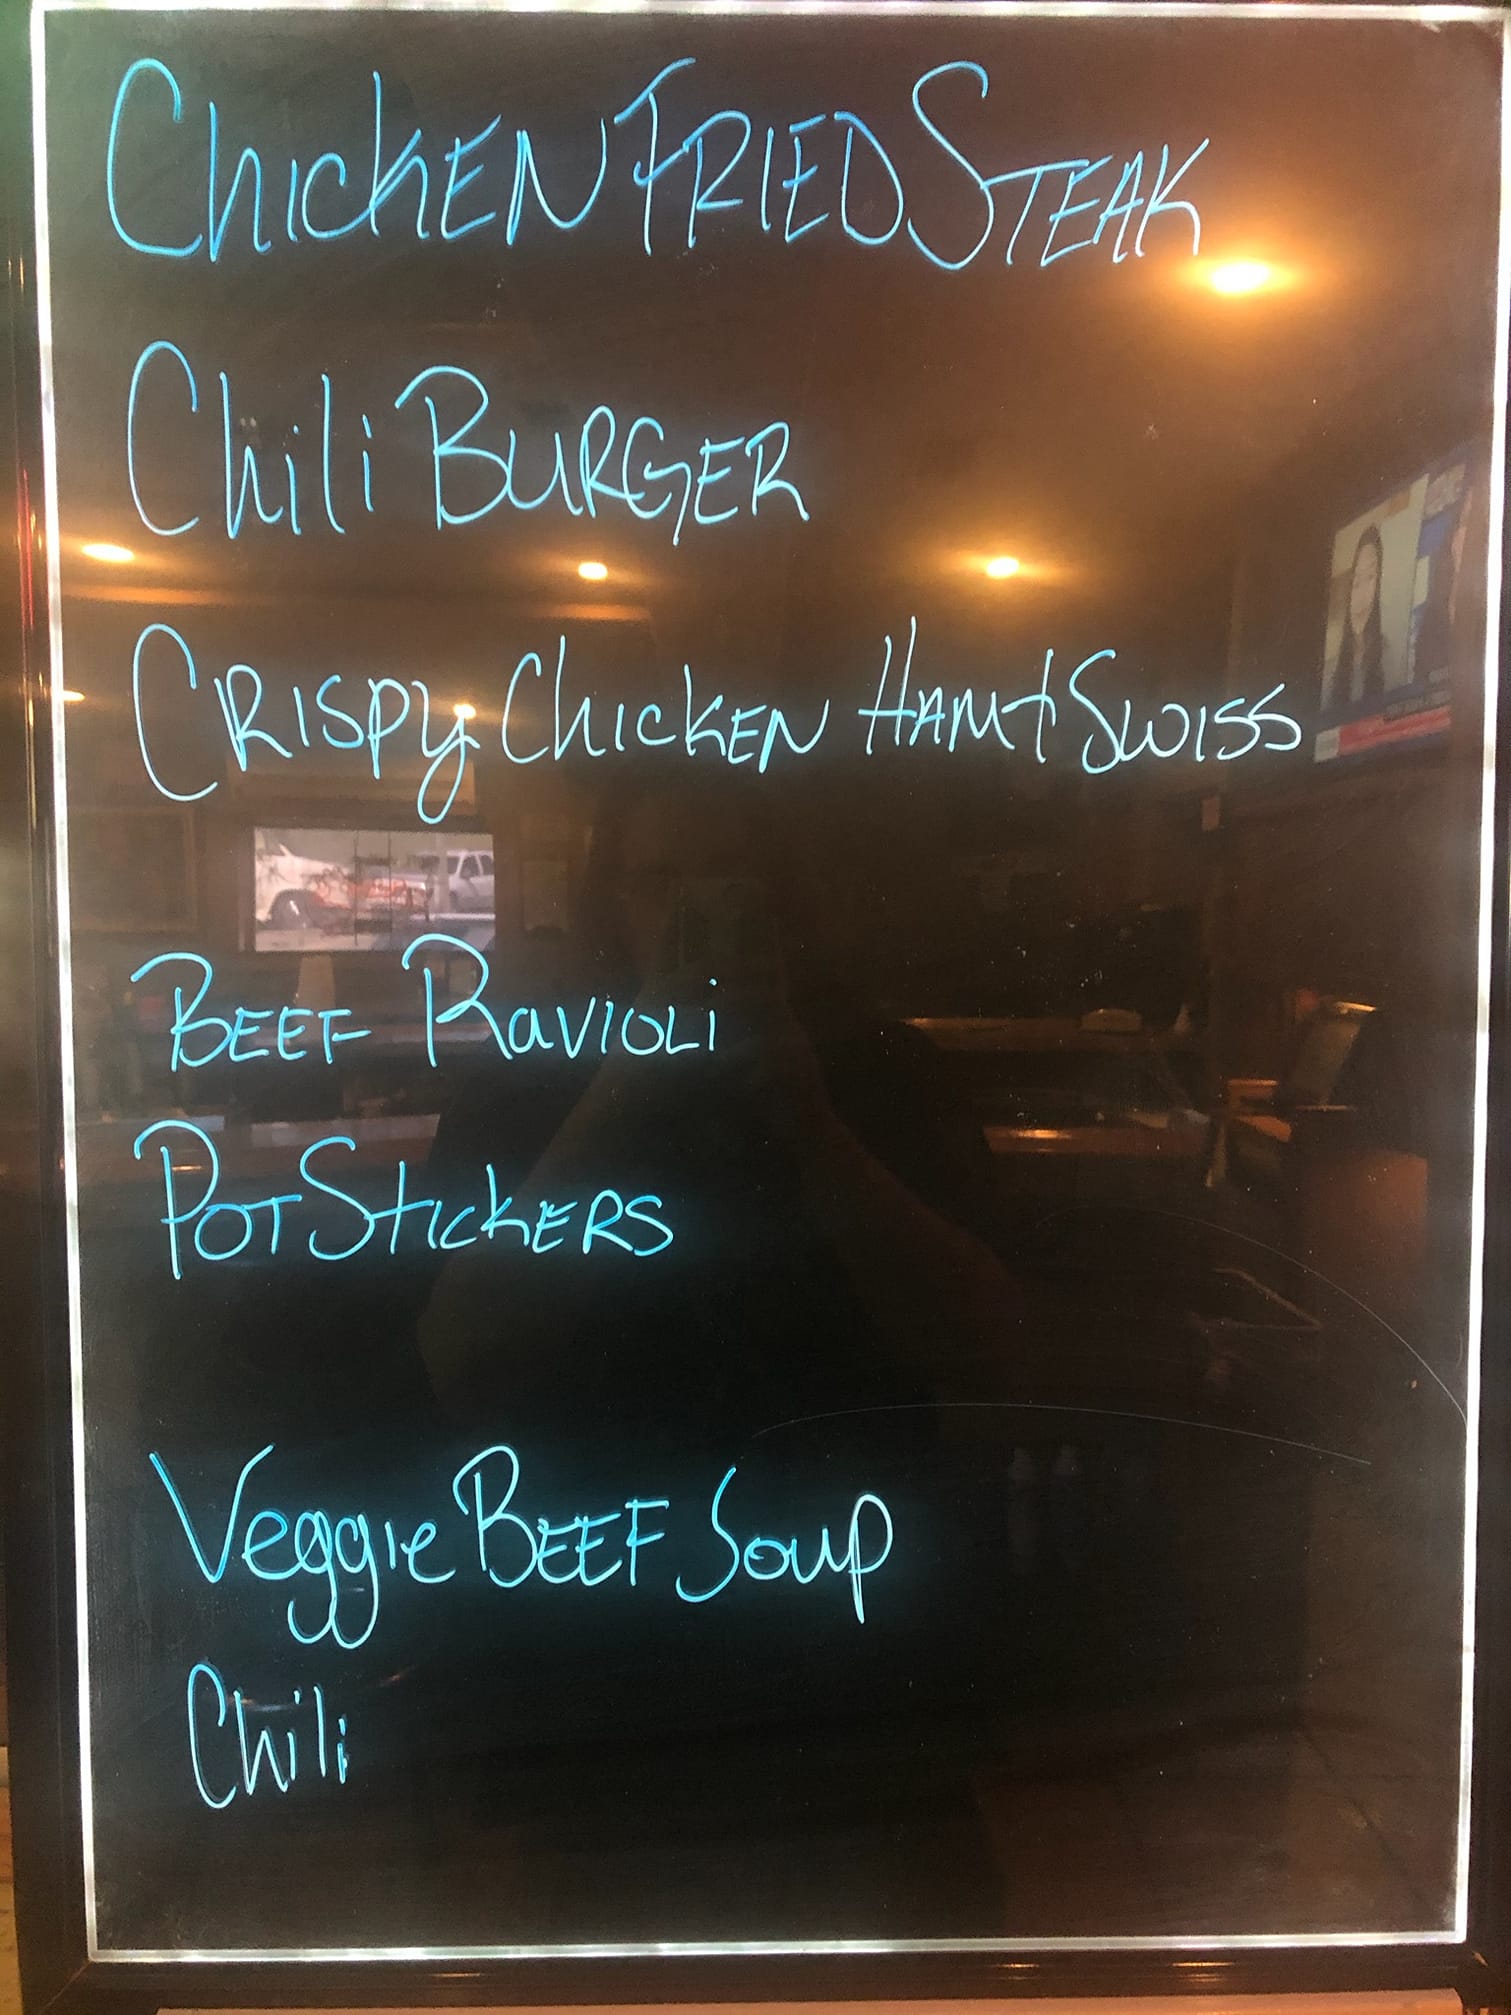 Chicken Fried Steak
Chili Burger
Crispy Chicken Ham + Swiss
Beef Ravioli
Pot Stickers
Veggie Beef Soup
Chili